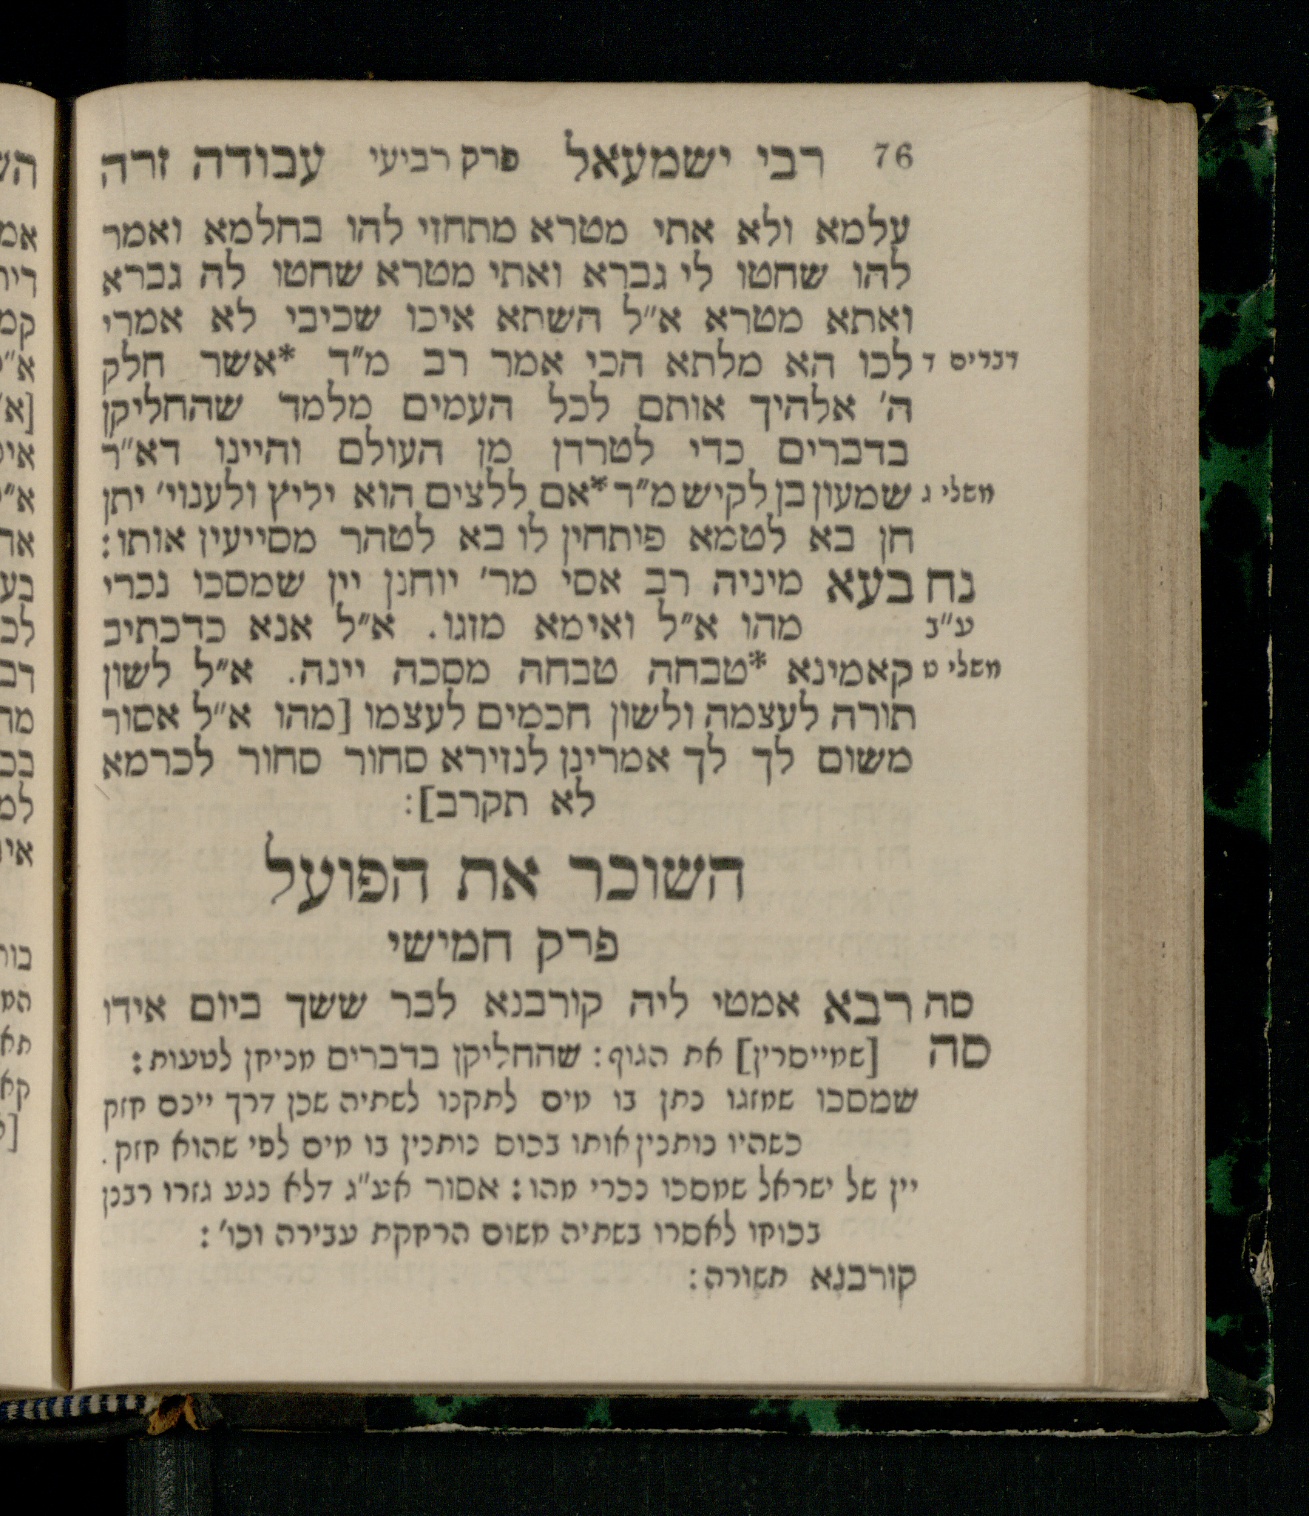 76 רבי ישמעאל פרק רביעי עבודה זרה
עלמא ולא אתי מטרא מתחזי להו בחלמא ואמר
להו שחטו לי גברא ואתי מטרא שחטו לה גברא
ואתא מטרא א״ל השתא איכו שכיבי לא אמרי
דברים ד לכו הא מלתא הכי אמר רב מ״ד *אשר חלק
ה׳ אלהיך אותם לכל העמים מלמד שהחליקן
בדברים כדי לטרדן מן העולם והיינו דא״ר
משלי ג שמעון בן לקיש מ״ד *אם ללצים הוא יליץ ולענוי׳ יתן
חן בא לטמא פותחין לו בא לטהר מסייעין אותו:
נח בעא מיניה רב אסי מר׳ יוחנן יין שמסכו נכרי
ע״ב מהו א״ל ואימא מזגו. א״ל אנא כדכתיב
משלי ט קאמינא *טבחה טבחה מסכה יינה. א״ל לשון
תורה לעצמה ולשון חכמים לעצמו [מהו א״ל אסור
משום לך לך אמרינן לנזירא סחור סחור לכרמא
לא תקרב]:
השוכר את הפועל
פרק חמישי
סה רבא אמטי ליה קורבנא לבר ששך ביום אידו
סה [שמייסרין] את הגוף: שהחליקן בדברים מכיחן לטעות:
שמסכו שמזגו נתן בו מים לתקנו לשתיה שכן דרך יינס חזק
כשהיו נותנין אותו בכוס נותנין בו מים לפי שהוא חזק.
יין של ישראל שמסכו נכרי מהו: אסור אע״ג דלא נגע גזרו רבנן
בכוחו לאסרו בשתיה משום הרחקת עבירה וכו׳:
קורבנא תשורה: